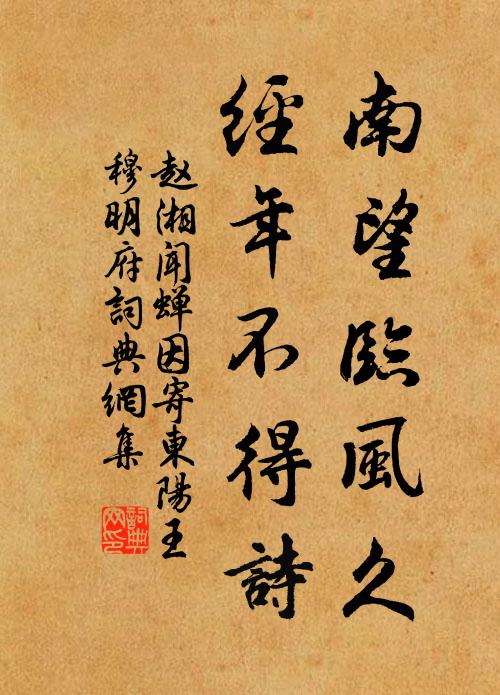 南望臨風久
經年不得詩
赵湘闻蝉因寄東陽王
穆明府詞典網集
詞典